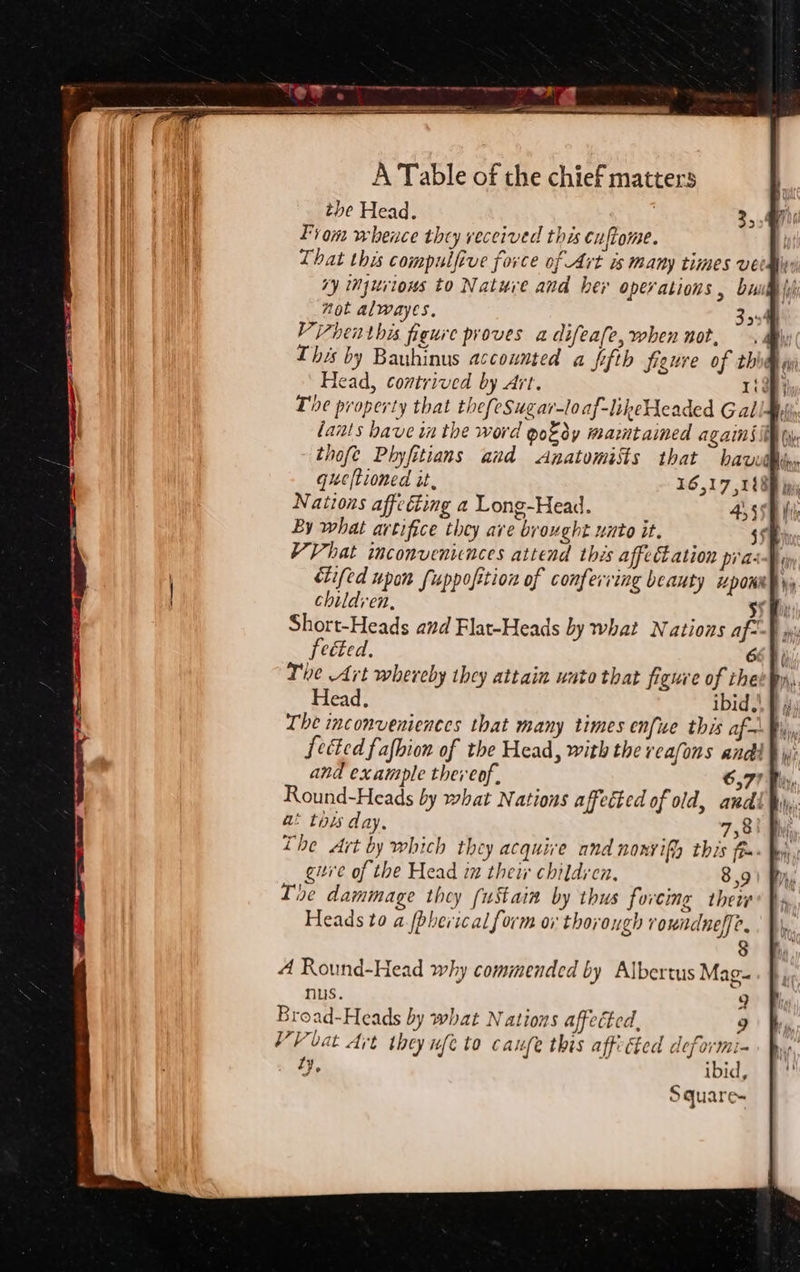 A Table of the chief matters
the Head. 3,
From whence they received this cuſtome.
That this compulſive force of Art is many times ve
ry injurious to Nature and her operations, but
not alwayes. 3,
VVhen this figure proves a diſeaſe, when not,
This by Bauhinus accounted a fifth figure of the
Head, contrived by Art.
The property that theſe Sugar-loaf-like Headed Gal
lants have in the word φοξὸν maintained againſt
thoſe Phyſitians and Anatomiſts that have
queſtioned it, 16,17,18
Nations affecting a Long-Head. 4,5
By what artifice they are brought unto it. 5
VVhat inconveniences attend this affectation prac-
ctiſed upon ſuppoſition of conferring beauty upon
children, 5
Short-Heads and Flat-Heads by what Nations af-
fected. 6
The Art whereby they attain unto that figure of the
Head. ibid.
The inconveniences that many times enſue this af-
fected faſhion of the Head, with the reaſons and
and example thereof. 6,7
Round-Heads by what Nations affected of old, and
at this day. 7,8
The Art by which they acquire and nouriſh this fi-
gure of the Head in their children. 8,9
The dammage they ſuſtain by thus forcing their
Heads to a ſpherical form or thorough roundneſſe.
8
A Round-Head why commended by Albertus Mag-
nus. 9
Broad-Heads by what Nations affected, 9
VVhat Art they uſe to cauſe this affected deformi-
ty. ibid,
Square-